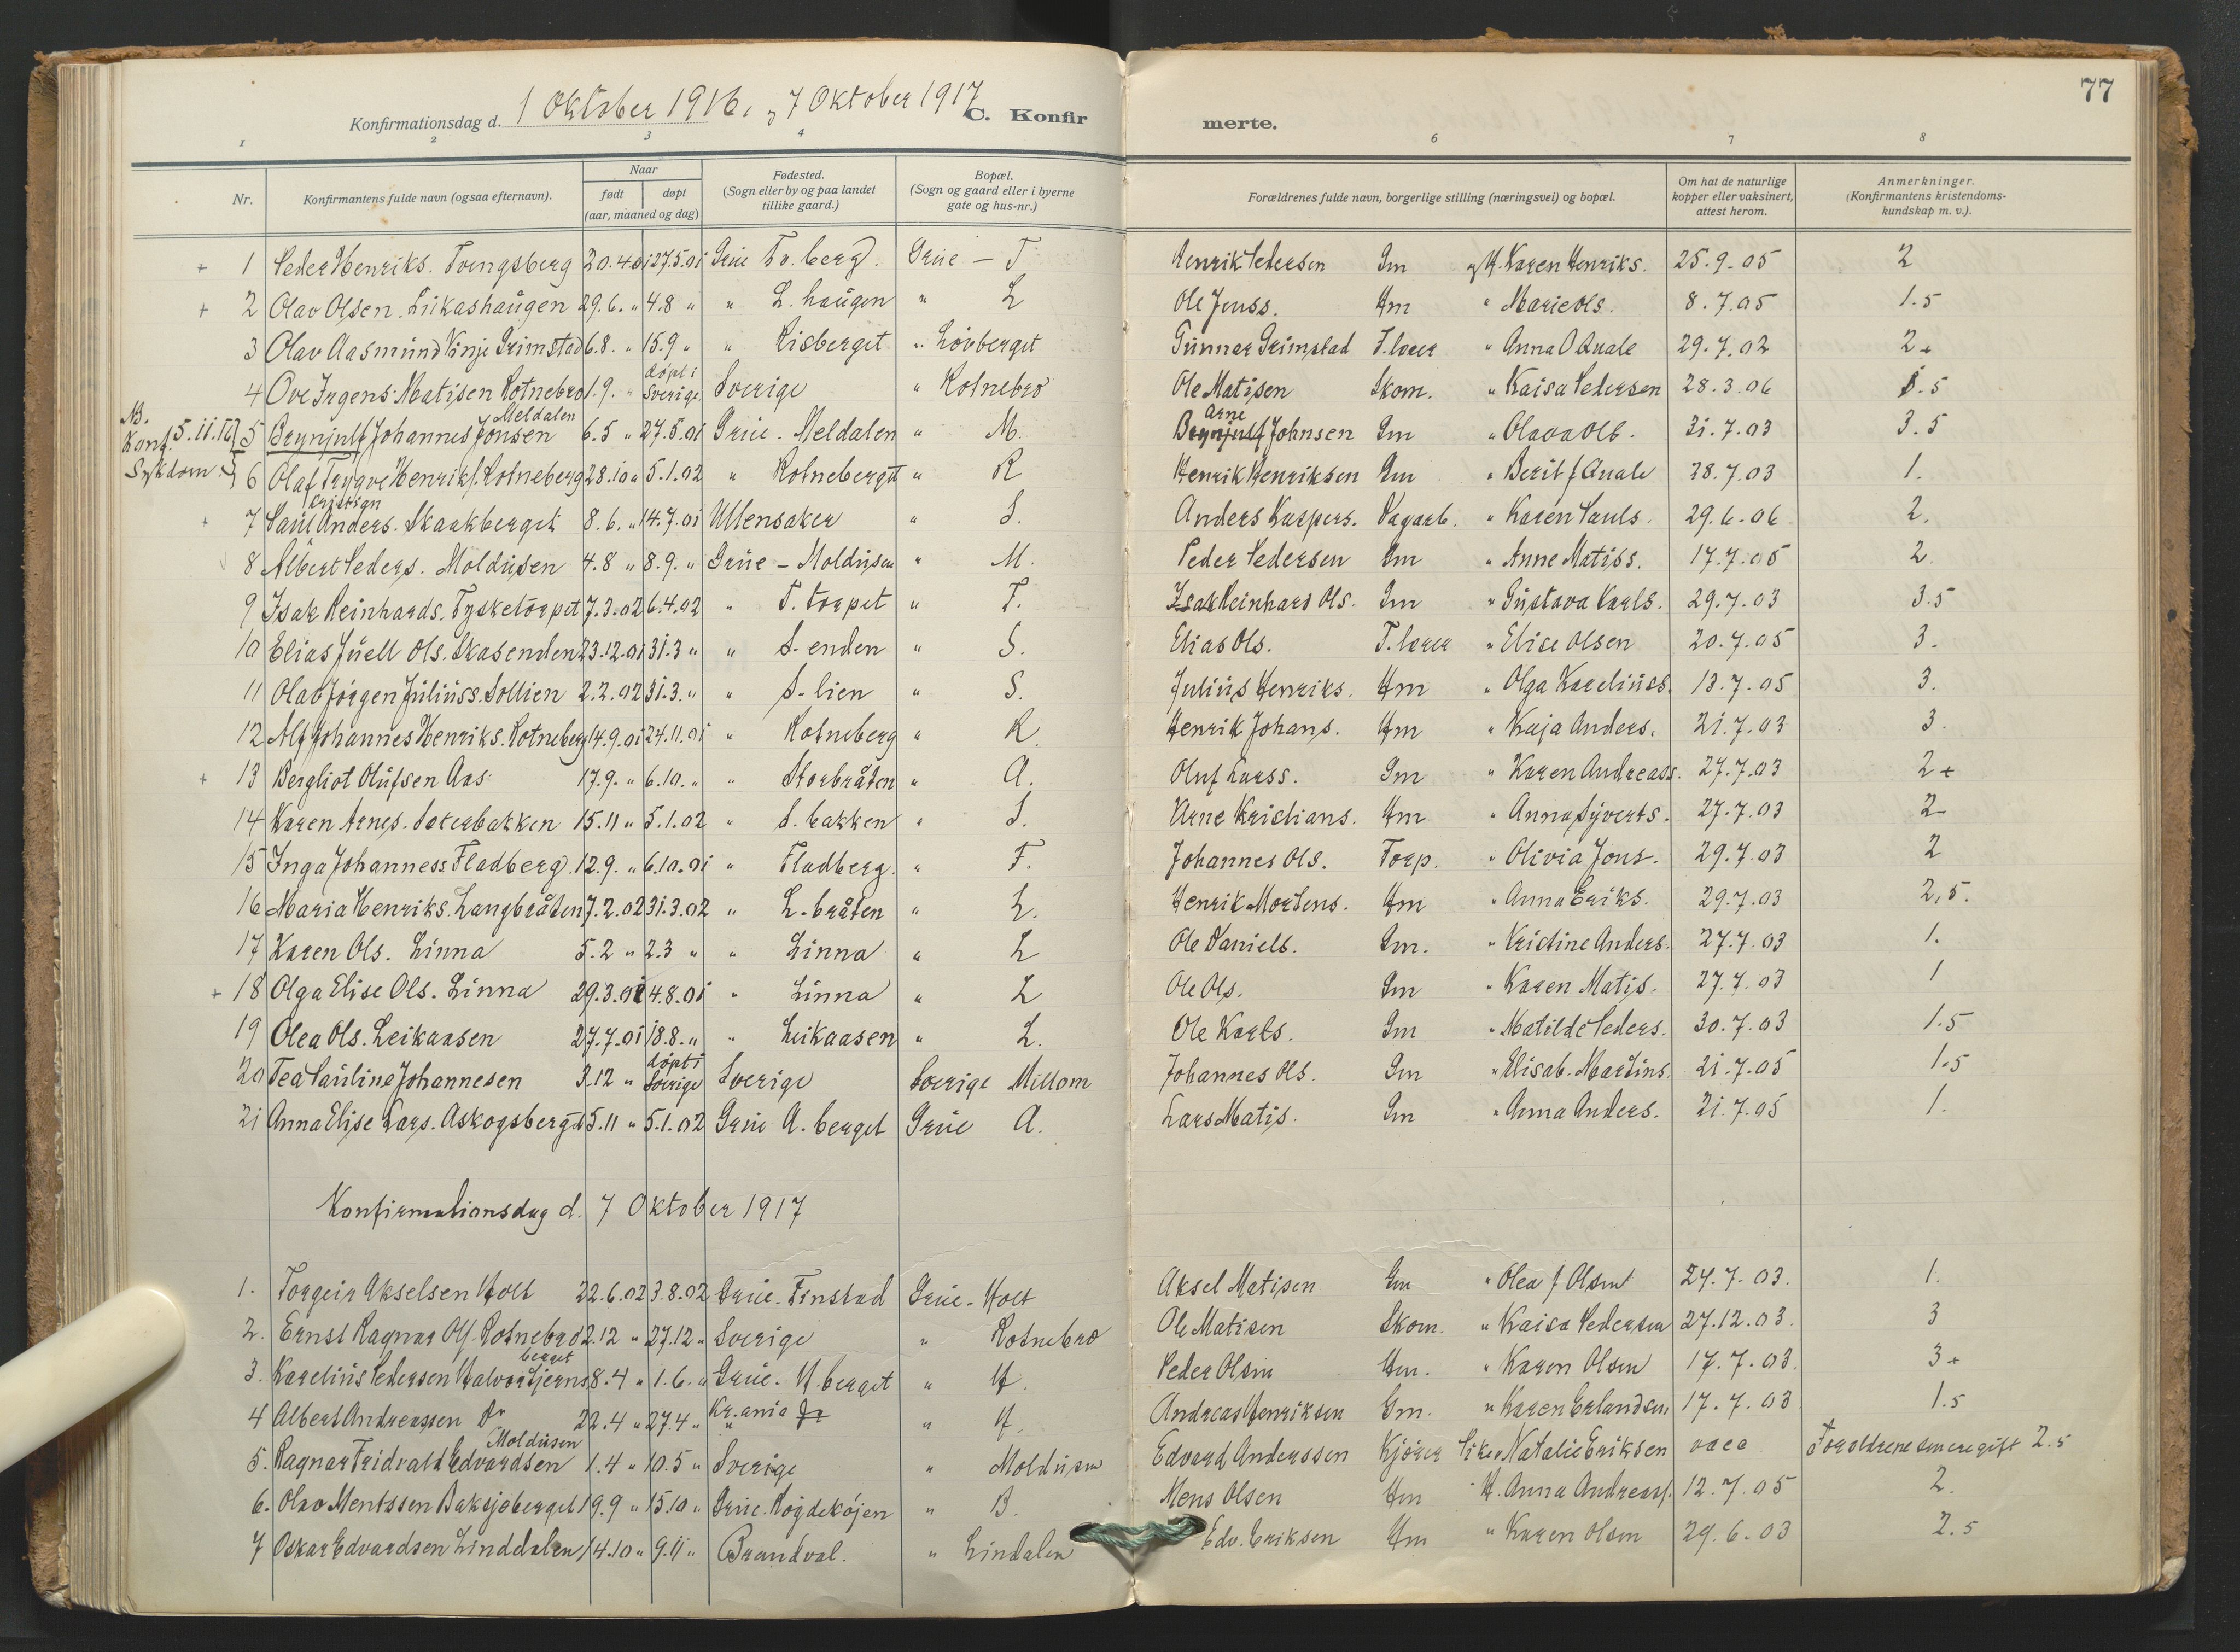 77
Konfirmationsdag d. 1 Oktober 1916. og 7 Oktober 1917
C. Konfir merte.
1 2 3 4 6 7 8
Nr. Konfirmantens fulde navn (ogsaa efternavn). Naar født døpt (aar, maaned og dag) Fødested. (Sogn eller by og paa landet tillike gaard.) Bopæl. (Sogn og gaard eller i byerne gate og hus-nr.) Forældrenes fulde navn, borgerlige stilling (næringsvei) og bopæl. Om hat de naturlige kopper eller vaksinert, attest herom. Anmerkninger. (Konfirmantens kristendoms-kundskap m. v.).
+ 1 Peder Henriks. Tvengsberg 20.4.01 27.5.01 Grue Tv. berg. Grue - T Henrik Pedersen Gm og H. Karen Henriks. 25.9.05 2
+ 2 Olav Olsen Lukashaugen 29.6. " 4.8 " " L. haugen " L Ole Jenss. Hm " Marie Ols. 8.7.05 1.5
3 Olav Aasmund Vinje Grimstad 6.8. " 15.9 " " Risberget " Lövberget Gunnar Grimstad F. lærer " Anna O Quale 29.7.02 2+
4 Ove Irgens Matisen Rotnebro 1.9. " döpt i Sverige Sverige " Rotnebro Ole Matisen Skom. " Kaisa Pedersen 28.3.06 1.5
NB. Konf. 5.11.16 Sykdom
5 Brynjulf Johannes Jonsen Meldalen 6.5 " 27.5.01 Grue. Meldalen " M. Arne Brynjulf Johnsen Gm " Olava Ols. 31.7.03 3.5
6 Olaf Trygve Henriks. Rotneberg 28.10 " 5.1.02 " Rotneberget " R Henrik Henriksen Gm " Berit f Quale 28.7.03 1.
+ 7 Paul Kristian Anders. Skaakberget 8.6. " 14.7.01 Ullensaker " S. Anders Kaspers. Dagarb. " Karen Pauls. 29.6.06 2.
8 Albert Peders. Moldusen 4.8 " 8.9. " Grue - Moldusen " M. Peder Pedersen Gm " Anne Matiss. 17.7.05 2
9 Isak Reinhards. Tysketorpet 7.3.02 6.4.02 " T. torpet " T. Isak Reinhard Ols. Gm " Gustava Karls. 29.7.03 3.5
10 Elias Juell Ols. Skasenden 23.12.01 31.3 " " S. enden " S. Elias Ols. F. lærer " Elise Olsen 20.7.05 3.
11 Olav Jörgen Juliuss. Sollien 2.2.02 31.3. " " S. lien " S. Julius Henriks. Hm " Olga Kareliuss. 13.7.05 3.
12 Alf Johannes Henriks. Rotneberg 14.9.01 24.11.01 " Rotneberg " R. Henrik Johans. Hm " Kaja Anders. 21.7.03 3.
+ 13 Bergliot Olufsen Aas 17.9. " 6.10. " " Storbråten " A. Oluf Larss. Gm " Karen Andreass. 27.7.03 2+
14 Karen Arnes. Sæterbakken 15.11 " 5.1.02 " S. bakken " S. Arne Kristians. Hm " Anna Syverts. 27.7.03 2-
15 Inga Johanness. Fladberg 12.9. " 6.10.01 " Fladberg. " F. Johannes Ols. Torp. " Olivia Jons. 29.7.03 2
16 Maria Henriks. Langbråten 7.2.02 31.3.02 " L. bråten " L. Henrik Mortens. Hm " Anna Eriks. 29.7.03 2,5.
17 Karen Ols. Linna 5.2 " 2.3 " " Linna " L Ole Daniels. Gm. " Kristine Anders. 27.7.03 1.
+ 18 Olga Elise Ols. Linna 29.3.01 4.8.01 " Linna " L Ole Ols. Gm " Karen Matis. 27.7.03 1
19 Olea Ols. Leikaasen 27.7.01 18.8. " " Leikaasen " L. Ole Karls. Gm " Matilde Peders. 30.7.03 1.5
20 Tea Pauline Johannesen 3.12 " döpt i Sverige Sverige Sverige Millom Johannes Ols. Gm " Elisab. Martins. 21.7.05 1.5
21 Anna Elise Lars. Askogsberget 5.11 " 5.1.02 Grue A. berget Grue A. Lars Matis. Gm " Anna Anders. 21.7.05 1.
Konfirmationsdag d. 7 Oktober 1917
1. Torgeir Akselsen Holt 22.6.02 3.8.02 Grue - Finstad Grue - Holt Aksel Matisen Gm " Olea f Olsen 24.7.03. 1.
2. Ernst Ragnar Ols. Rotnebro 2.12 " 27.12 " Sverige " Rotnebro Ole Matisen Skom. " Kaisa Pedersen 27.12.03. 3
3. Karelius Pedersen Halvorstjernsberget 8.4 " 1.6. " Grue. H berget " H. Peder Olsen Hm. " Karen Olsen 17.7.03. 3+
4 Albert Andreassen Do 22.4 " 27.4 " Kr.ania " H. Andreas Henriksen Gm. " Karen Erlandsen 17.7.03 1.5
5. Ragnar Fridvald Edvardsen Moldusen 1.4 " 10.5 " Sverige " Moldusen Edvard Anderssen Kjörer Pike Natalie Eriksen vacc Foreldrene senere gift 2.5
6. Olav Mentssen Baksjöberget 19.9 " 15.10 " Grue. Rögdeköjen " B. Mens Olsen Hm " H. Anna Andreass. 12.7.05 2.
7 Oskar Edvardsen Linddalen 14.10 " 9.11 " Brandval. " Lindalen Edv. Eriksen Hm " Karen Olsen 29.6.03 2.5